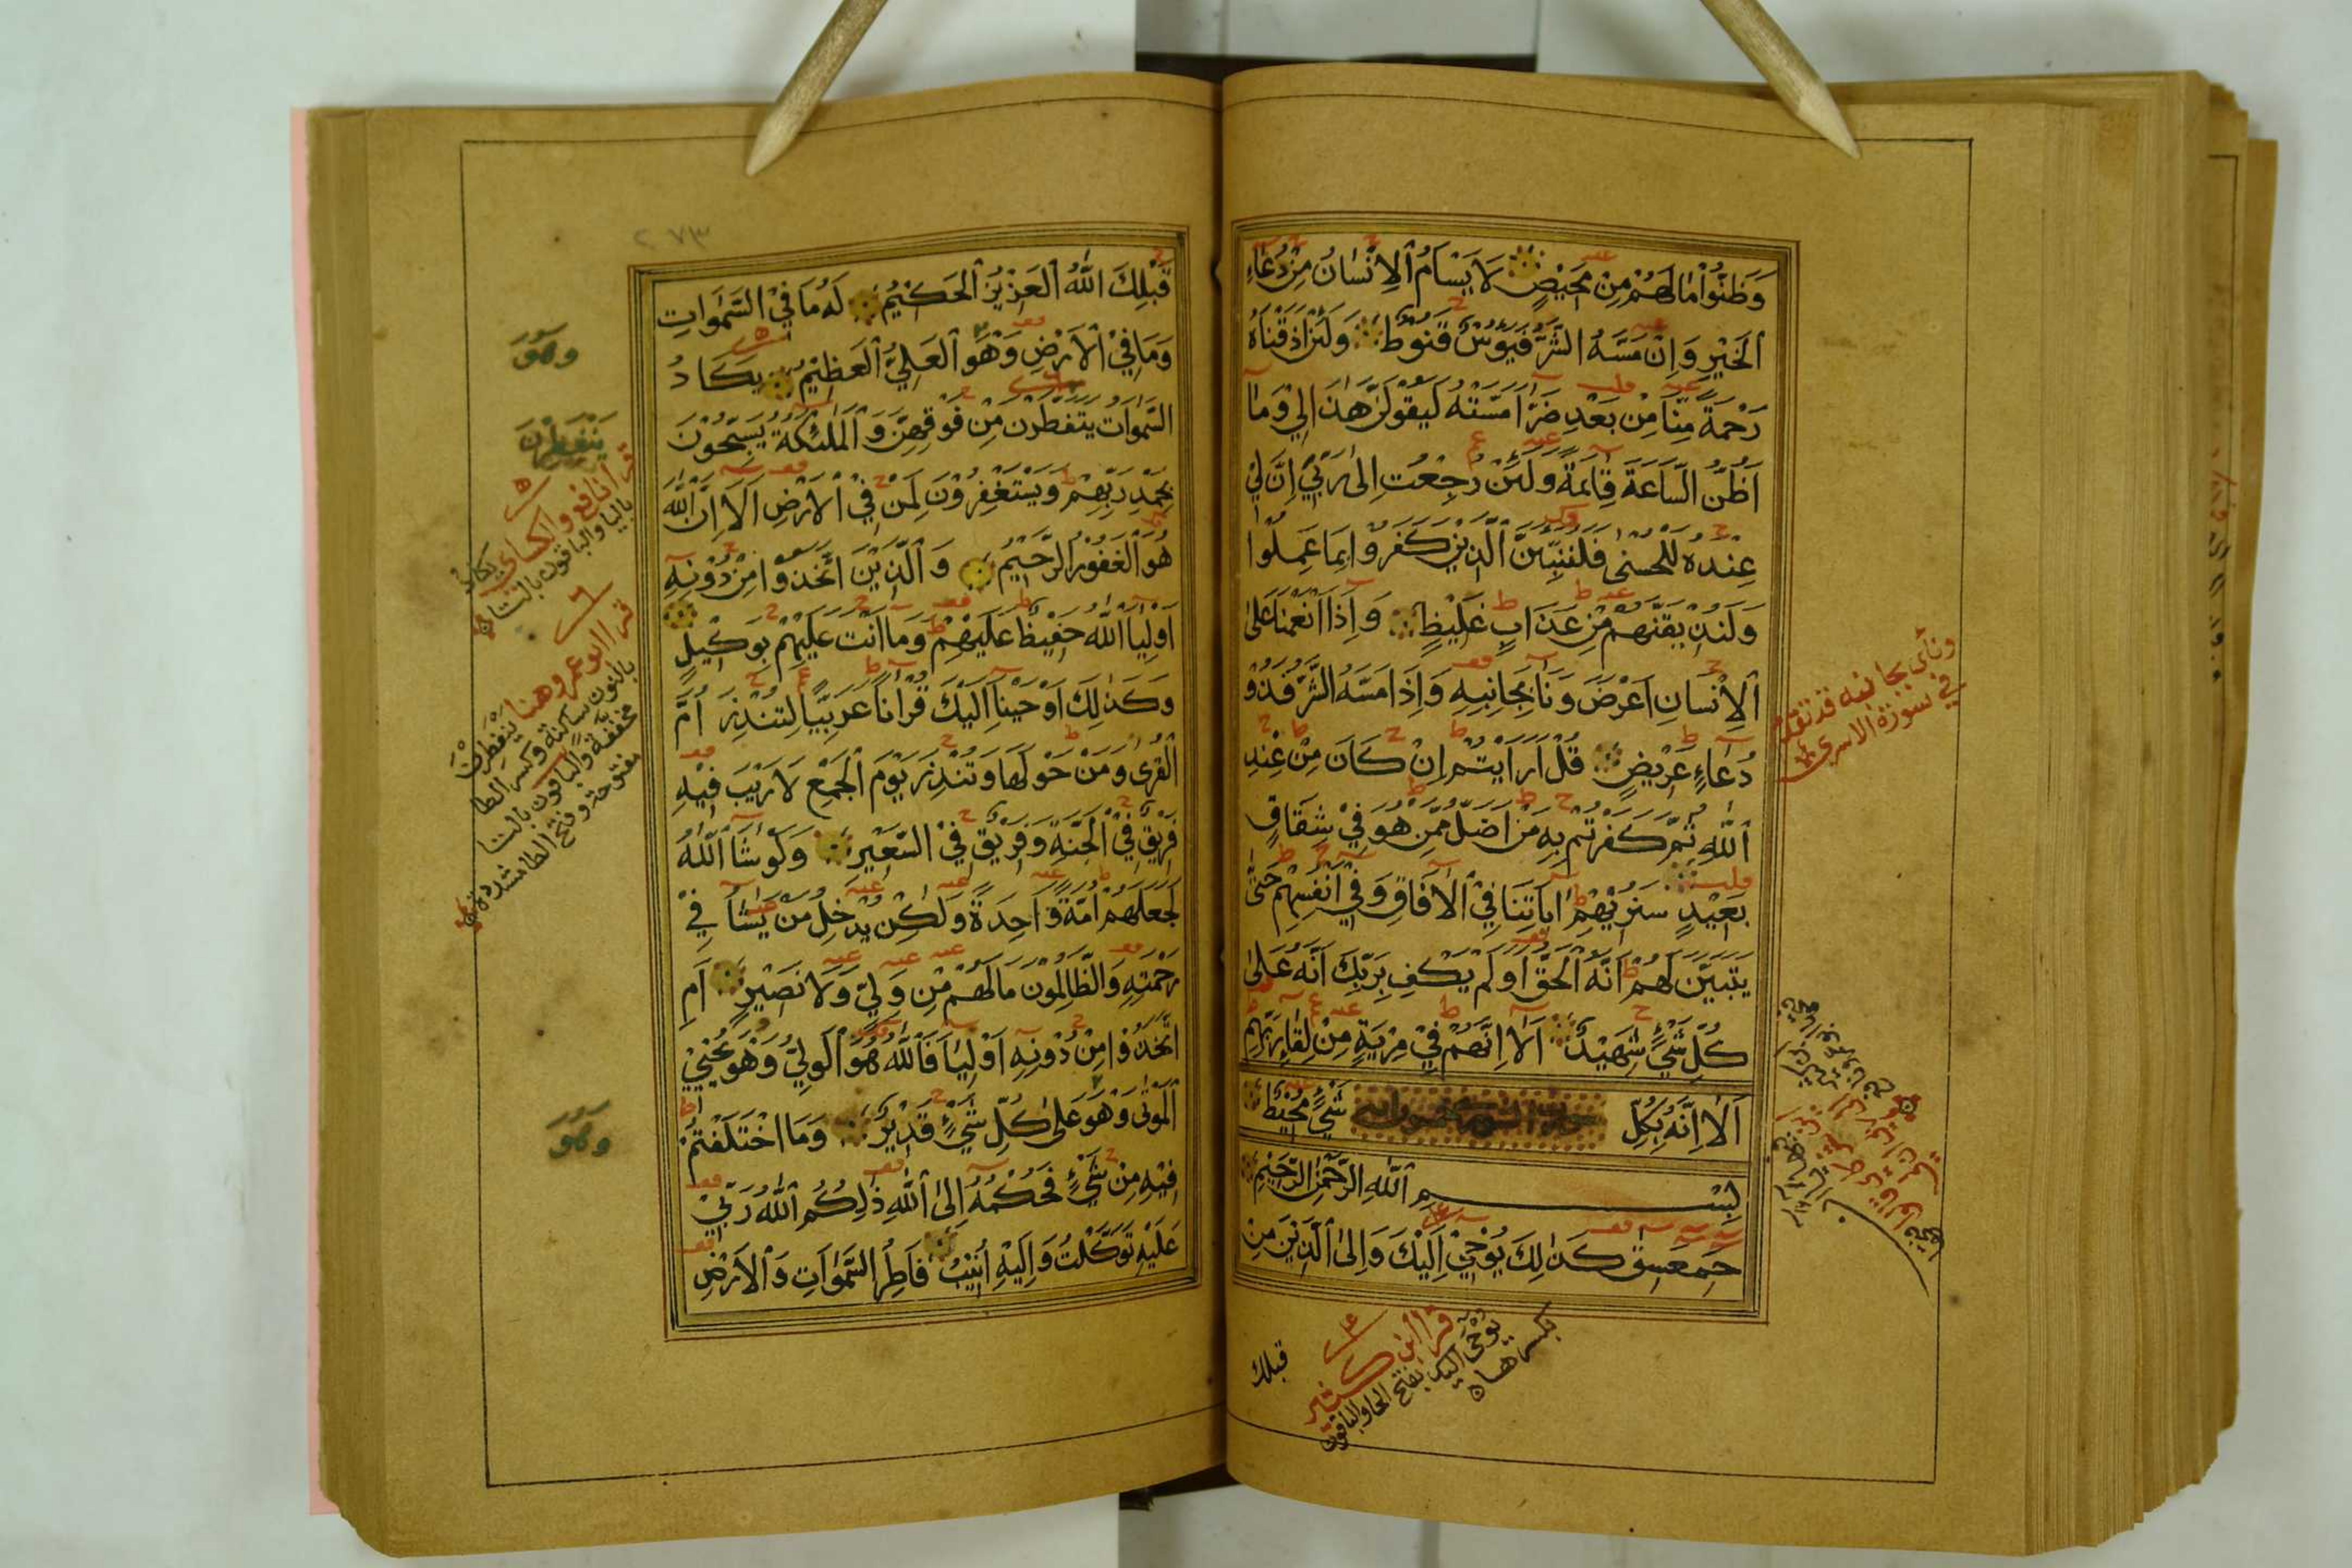 وَظَنُّوا مَا لَهُمْ مِنْ مَحِيْصٍ لَا يَسْاَمُ الْاِنْسَانُ مِنْ دُعَاءِ
الْخَيْرِ وَاِنْ مَسَّهُ الشَّرُّ فَيَؤُسٌ قَنُوطٌ وَلَئِنْ اَذَقْنَاهُ
رَحْمَةً مِنَّا مِنْ بَعْدِ ضَرَّا مَسَّتْهُ لَيَقُولَنَّ هٰذَا لِي وَمَا
اَظُنُّ السَّاعَةَ قَائِمَةً وَلَئِنْ رُجِعْتُ اِلٰى رَبِّي اِنَّ لِيْ
عِنْدَهُ لَلْحُسْنٰى فَلَنُنَبِّئَنَّ الَّذِيْنَ كَفَرُوا بِمَا عَمِلُوا
وَلَنُذِيْقَنَّهُمْ مِنْ عَذَابٍ غَلِيْظٍ وَاِذَا اَنْعَمْنَا عَلَى
الْاِنْسَانِ اَعْرَضَ وَنَأ بِجَانِبِهِ وَاِذَا مَسَّهُ الشَّرُّ فَذُوْ
دُعَاءٍ عَرِيْضٍ قُلْ اَرَاَيْتُمْ اِنْ كَانَ مِنْ عِنْدِ
اللّٰهِ ثُمَّ كَفَرْتُمْ بِهِ مَنْ اَضَلُّ مِمَّنْ هُوَ فِيْ شِقَاقٍ
بَعِيْدٍ سَنُرِيْهِمْ اٰيَاتِنَا فِي الْاٰفَاقِ وَفِيْ اَنْفُسِهِمْ حَتّٰى
يَتَبَيَّنَ لَهُمْ اَنَّهُ الْحَقُّ اَوَلَمْ يَكْفِ بِرَبِّكَ اَنَّهُ عَلٰى
كُلِّ شَيْءٍ شَهِيْدٌ اَلَا اِنَّهُمْ فِيْ مِرْيَةٍ مِنْ لِقَاءِ رَبِّهِمْ
اَلَا اِنَّهُ بِكُلِّ شَيْءٍ مُحِيْطٌ
بِسْمِ اللّٰهِ الرَّحْمٰنِ الرَّحِيْمِ
حمعسق كَذٰلِكَ يُوْحِيْ اِلَيْكَ وَاِلَى الَّذِيْنَ مِنْ
ونأى بجانبه قد تقدم
في سورة الاسرى
قرأ ابن كثير
يوحى اليك بفتح الحا والباقون
بكسرها
قبلك
٢٧٣
قَبْلِكَ اللّٰهُ الْعَزِيْزُ الْحَكِيْمُ لَهُ مَا فِي السَّمٰوَاتِ
وَمَا فِي الْاَرْضِ وَهُوَ الْعَلِيُّ الْعَظِيْمُ يَكَادُ
السَّمٰوَاتُ يَتَفَطَّرْنَ مِنْ فَوْقِهِنَّ وَالْمَلٰئِكَةُ يُسَبِّحُوْنَ
بِحَمْدِ رَبِّهِمْ وَيَسْتَغْفِرُوْنَ لِمَنْ فِي الْاَرْضِ اَلَا اِنَّ اللّٰهَ
هُوَ الْغَفُوْرُ الرَّحِيْمُ وَالَّذِيْنَ اتَّخَذُوْا مِنْ دُوْنِهِ
اَوْلِيَا اللّٰهُ حَفِيْظٌ عَلَيْهِمْ وَمَا اَنْتَ عَلَيْهِمْ بِوَكِيْلٍ
وَكَذٰلِكَ اَوْحَيْنَا اِلَيْكَ قُرْاٰنًا عَرَبِيًّا لِتُنْذِرَ اُمَّ
الْقُرٰى وَمَنْ حَوْلَهَا وَتُنْذِرَ يَوْمَ الْجَمْعِ لَا رَيْبَ فِيْهِ
فَرِيْقٌ فِي الْجَنَّةِ وَفَرِيْقٌ فِي السَّعِيْرِ وَلَوْ شَا اللّٰهُ
لَجَعَلَهُمْ اُمَّةً وَاحِدَةً وَلٰكِنْ يُدْخِلُ مَنْ يَشَا فِيْ
رَحْمَتِهِ وَالظَّالِمُوْنَ مَا لَهُمْ مِنْ وَلِيٍّ وَلَا نَصِيْرٍ اَمِ
اتَّخَذُوْا مِنْ دُوْنِهِ اَوْلِيَا فَاللّٰهُ هُوَ الْوَلِيُّ وَهُوَ يُحْيِي
الْمَوْتٰى وَهُوَ عَلٰى كُلِّ شَيْءٍ قَدِيْرٌ وَمَا اخْتَلَفْتُمْ
فِيْهِ مِنْ شَيْءٍ فَحُكْمُهُ اِلَى اللّٰهِ ذٰلِكُمُ اللّٰهُ رَبِّيْ
عَلَيْهِ تَوَكَّلْتُ وَاِلَيْهِ اُنِيْبُ فَاطِرُ السَّمٰوَاتِ وَالْاَرْضِ
وهو
ينفطرن
قرأ نافع والكسائي يكاد
باليا والباقون بالتا
قرا ابو عمرو هنا ينفطرن
بالنون ساكنة وكسر الطا
مخففة والباقون بالتا
مفتوحة وفتح الطا مشددة
وهو